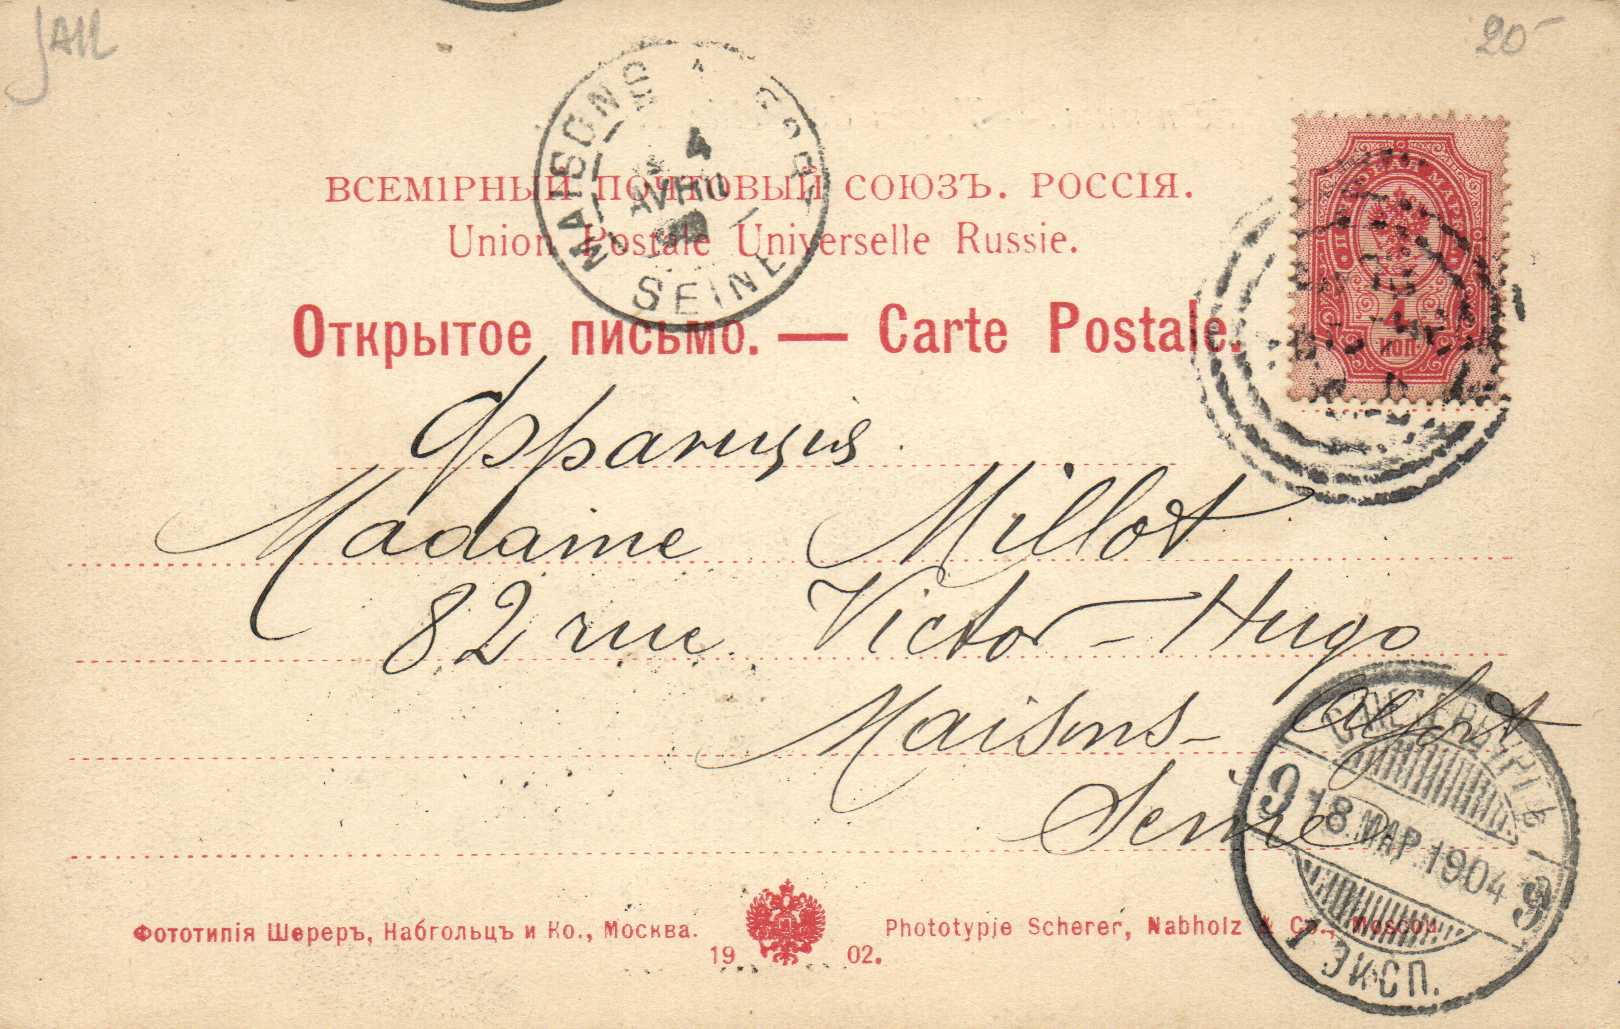 JAIL
20-
MAISONS
4
AVRIL
SEINE
ВСЕМІРНЫЙ ПОЧТОВЫЙ СОЮЗЪ. РОССІЯ.
Union Postale Universelle Russie.
Открытое письмо. — Carte Postale.
4
коп.
Франція.
Madame Millot
82 rue Victor-Hugo
Maisons-Alfort
Seine
С.ПЕТЕРБУРГЪ
9 18 МАР. 1904 9
1 ЭКСП.
Фототипія Шереръ, Набгольцъ и Ко., Москва.
19 02.
Phototypie Scherer, Nabholz & Co., Moscou